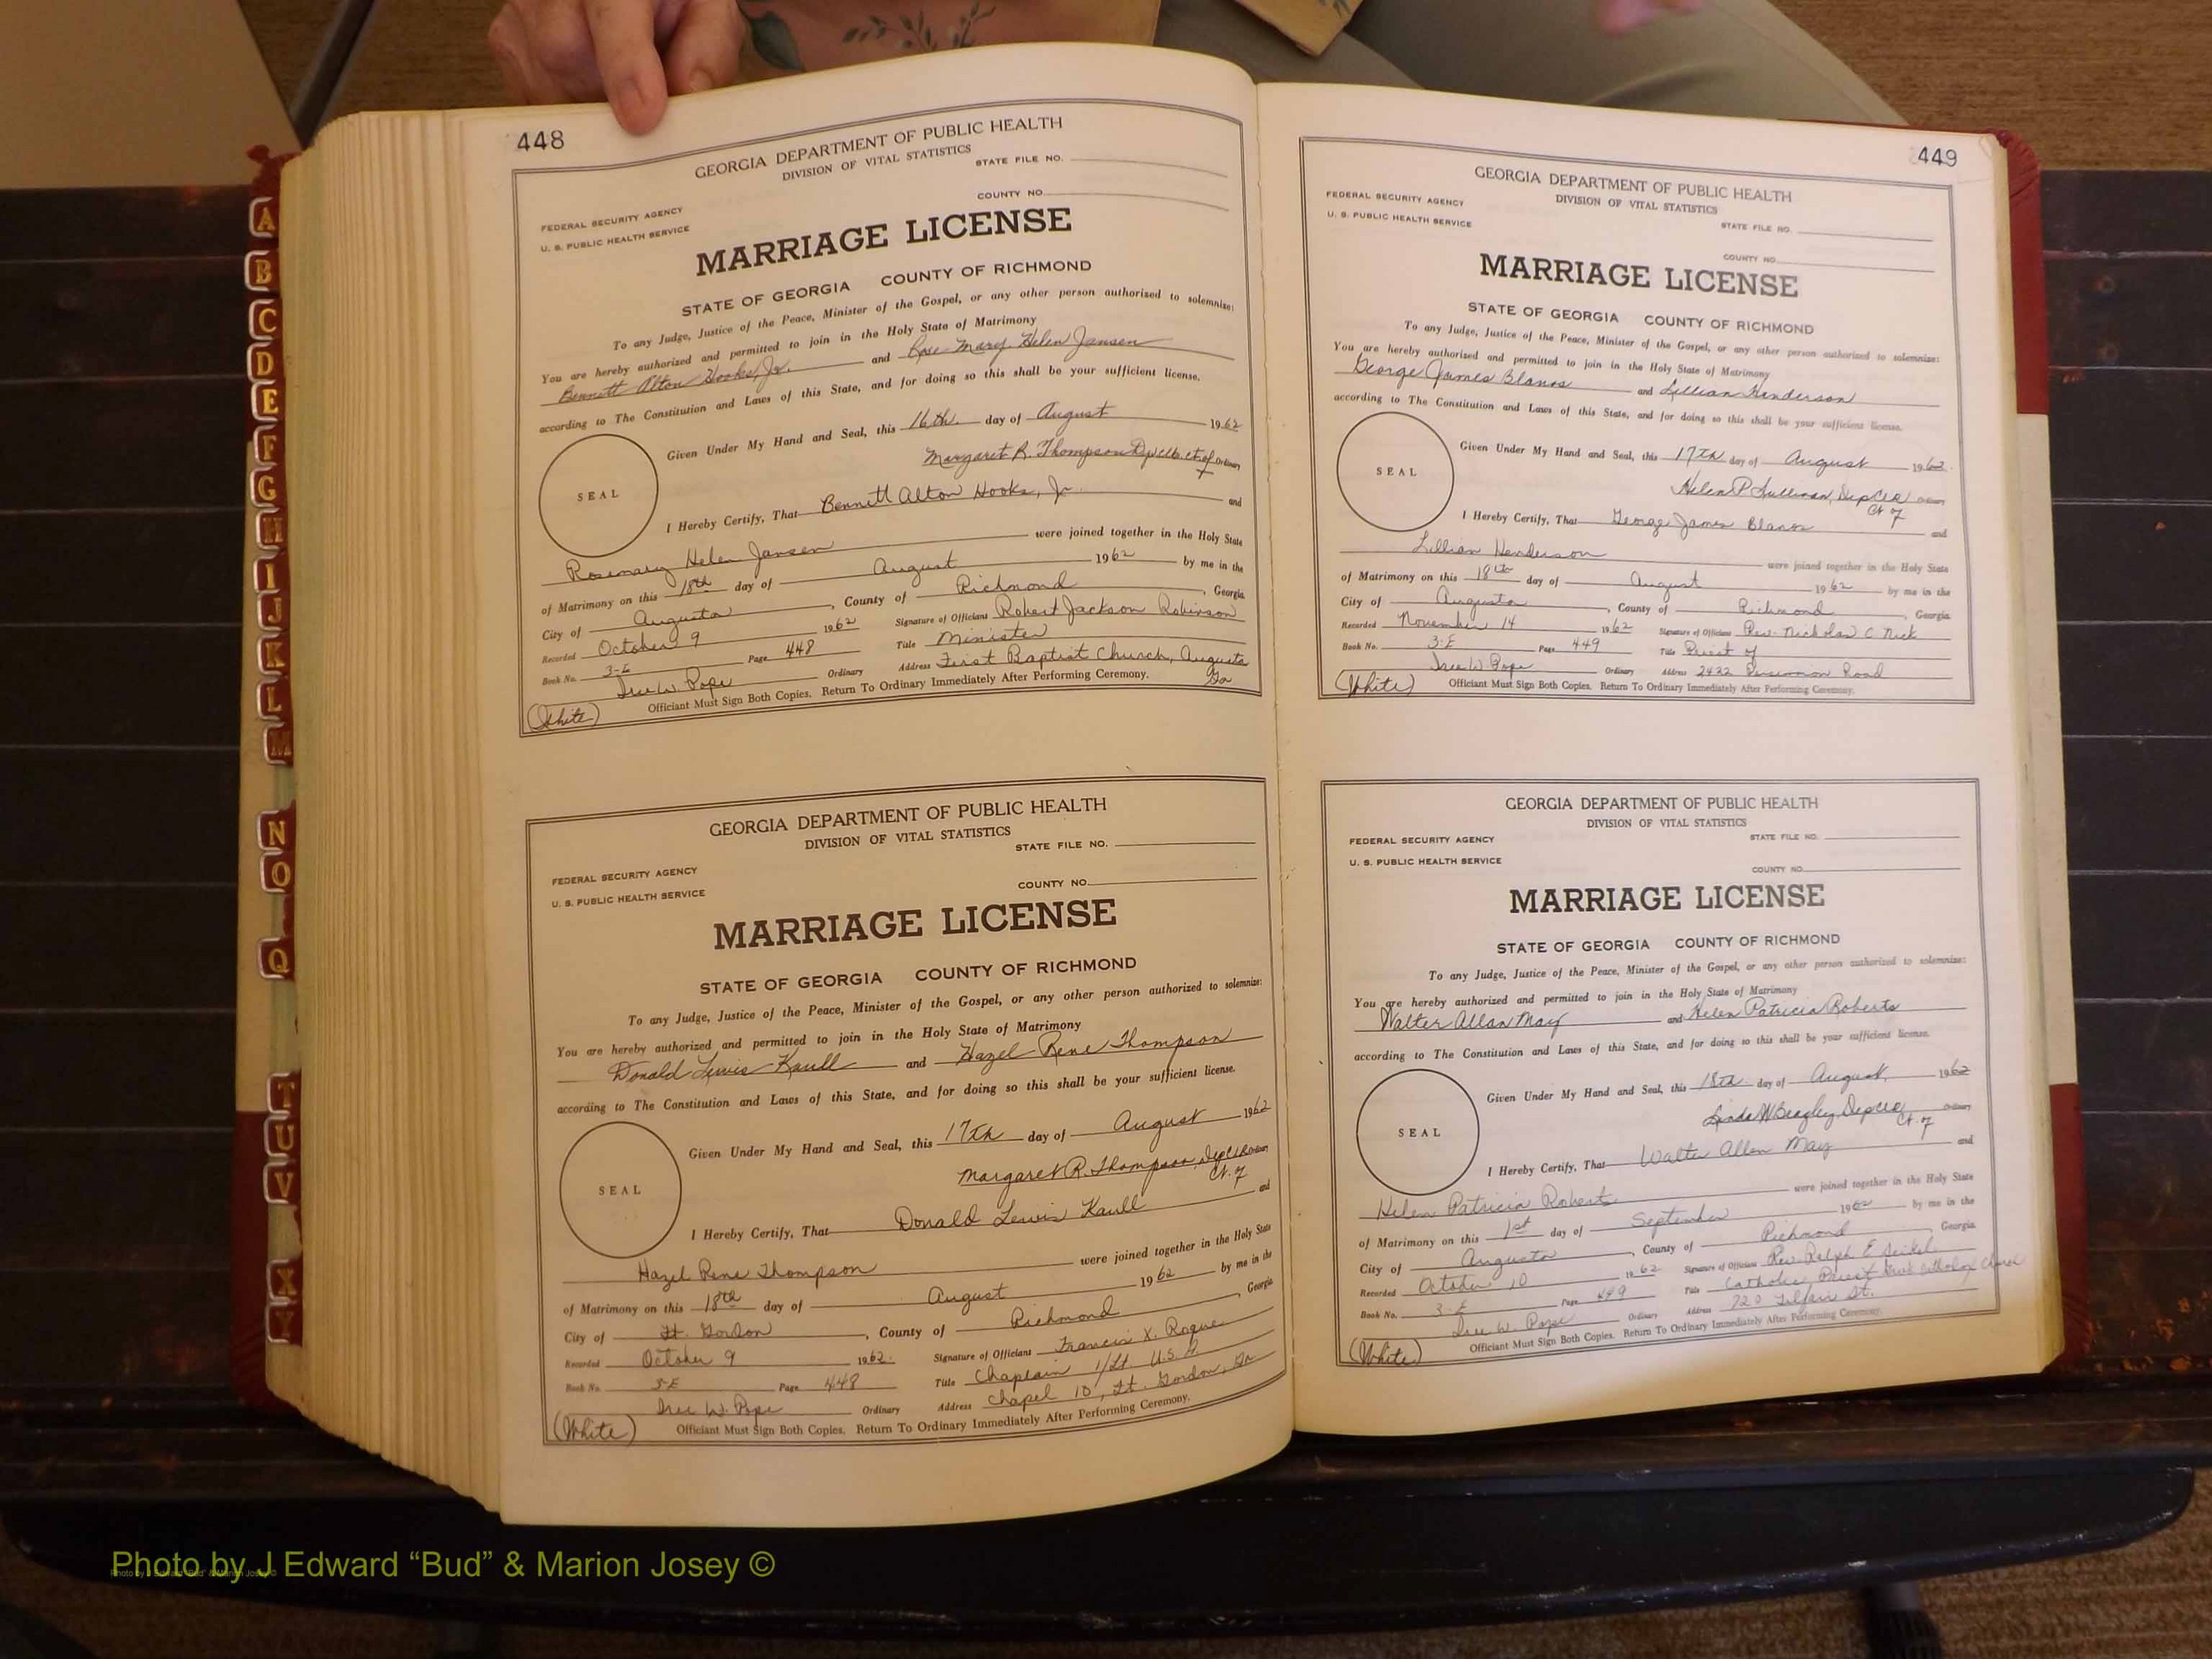 A
B
C
D
E
F
G
H
I
J
K
L
M
N
O
Q
T
U
V
X
Y
448
GEORGIA DEPARTMENT OF PUBLIC HEALTH
DIVISION OF VITAL STATISTICS
STATE FILE NO.
COUNTY NO.
FEDERAL SECURITY AGENCY
U. S. PUBLIC HEALTH SERVICE
MARRIAGE LICENSE
STATE OF GEORGIA COUNTY OF RICHMOND
To any Judge, Justice of the Peace, Minister of the Gospel, or any other person authorized to solemnize:
You are hereby authorized and permitted to join in the Holy State of Matrimony
Bennett Alton Hooks, Jr. and Rose Mary Helen Jansen
according to The Constitution and Laws of this State, and for doing so this shall be your sufficient license.
Given Under My Hand and Seal, this 16th. day of August 1962
Margaret R. Thompson Ordinary
SEAL
I Hereby Certify, That Bennett Alton Hooks, Jr. and
Rosemary Helen Jansen were joined together in the Holy State
of Matrimony on this 18th day of August 1962 by me in the
City of Augusta, County of Richmond, Georgia
Recorded October 9 1962 Signature of Officiant Robert Jackson Robinson
Book No. 3-E Page 448 Title Minister
Ordinary Address First Baptist Church, Augusta
Ga
(White) Officiant Must Sign Both Copies. Return To Ordinary Immediately After Performing Ceremony.
GEORGIA DEPARTMENT OF PUBLIC HEALTH
DIVISION OF VITAL STATISTICS
STATE FILE NO.
FEDERAL SECURITY AGENCY
COUNTY NO.
U. S. PUBLIC HEALTH SERVICE
MARRIAGE LICENSE
STATE OF GEORGIA COUNTY OF RICHMOND
To any Judge, Justice of the Peace, Minister of the Gospel, or any other person authorized to solemnize:
You are hereby authorized and permitted to join in the Holy State of Matrimony
Donald Lewis Kaull and Hazel Rene Thompson
according to The Constitution and Laws of this State, and for doing so this shall be your sufficient license.
Given Under My Hand and Seal, this 17th day of August 1962
Margaret R. Thompson, Dep Clk Ordinary
Ct. of
SEAL
I Hereby Certify, That Donald Lewis Kaull and
Hazel Rene Thompson were joined together in the Holy State
of Matrimony on this 18th day of August 1962 by me in the
City of Ft. Gordon, County of Richmond Georgia
Recorded October 9 1962. Signature of Officiant Francis X. Rogue
Book No. 3-E Page 448 Title Chaplain 1/Lt. U.S.A
Ordinary Address Chapel 10, Ft. Gordon, Ga
(White) Officiant Must Sign Both Copies. Return To Ordinary Immediately After Performing Ceremony.
449
GEORGIA DEPARTMENT OF PUBLIC HEALTH
DIVISION OF VITAL STATISTICS
FEDERAL SECURITY AGENCY
U. S. PUBLIC HEALTH SERVICE
STATE FILE NO.
COUNTY NO.
MARRIAGE LICENSE
STATE OF GEORGIA COUNTY OF RICHMOND
To any Judge, Justice of the Peace, Minister of the Gospel, or any other person authorized to solemnize:
You are hereby authorized and permitted to join in the Holy State of Matrimony
George James Blanos and Lillian Henderson
according to The Constitution and Laws of this State, and for doing so this shall be your sufficient license.
Given Under My Hand and Seal, this 17th day of August 1962
Helen P Sullivan, Dep Clk Ordinary
Ct of
SEAL
I Hereby Certify, That George James Blanos and
Lillian Henderson were joined together in the Holy State
of Matrimony on this 18th day of August 1962 by me in the
City of Augusta, County of Richmond, Georgia
Recorded November 14 1962 Signature of Officiant Rev. Nicholas C. Nick
Book No. 3-E Page 449 Title Priest of
Ordinary Address 2422 Road
(White) Officiant Must Sign Both Copies. Return To Ordinary Immediately After Performing Ceremony.
GEORGIA DEPARTMENT OF PUBLIC HEALTH
DIVISION OF VITAL STATISTICS
FEDERAL SECURITY AGENCY STATE FILE NO.
U. S. PUBLIC HEALTH SERVICE
COUNTY NO.
MARRIAGE LICENSE
STATE OF GEORGIA COUNTY OF RICHMOND
To any Judge, Justice of the Peace, Minister of the Gospel, or any other person authorized to solemnize:
You are hereby authorized and permitted to join in the Holy State of Matrimony
Walter Allan May and Helen Patricia Roberts
according to The Constitution and Laws of this State, and for doing so this shall be your sufficient license.
Given Under My Hand and Seal, this 18th day of August, 1962
Linda W Beagley, Dep Clk Ordinary
Ct. of
SEAL
I Hereby Certify, That Walter Allen May and
Helen Patricia Roberts were joined together in the Holy State
of Matrimony on this 1st day of September 1962 by me in the
City of Augusta, County of Richmond, Georgia
Recorded October 10 1962 Signature of Officiant Rev. Ralph E Seikel
Book No. 3-E Page 449 Title Catholic Priest
Ordinary Address 720 Telfair St.
(White) Officiant Must Sign Both Copies. Return To Ordinary Immediately After Performing Ceremony.
Photo by J Edward “Bud” & Marion Josey ©
Photo by J Edward “Bud” & Marion Josey ©